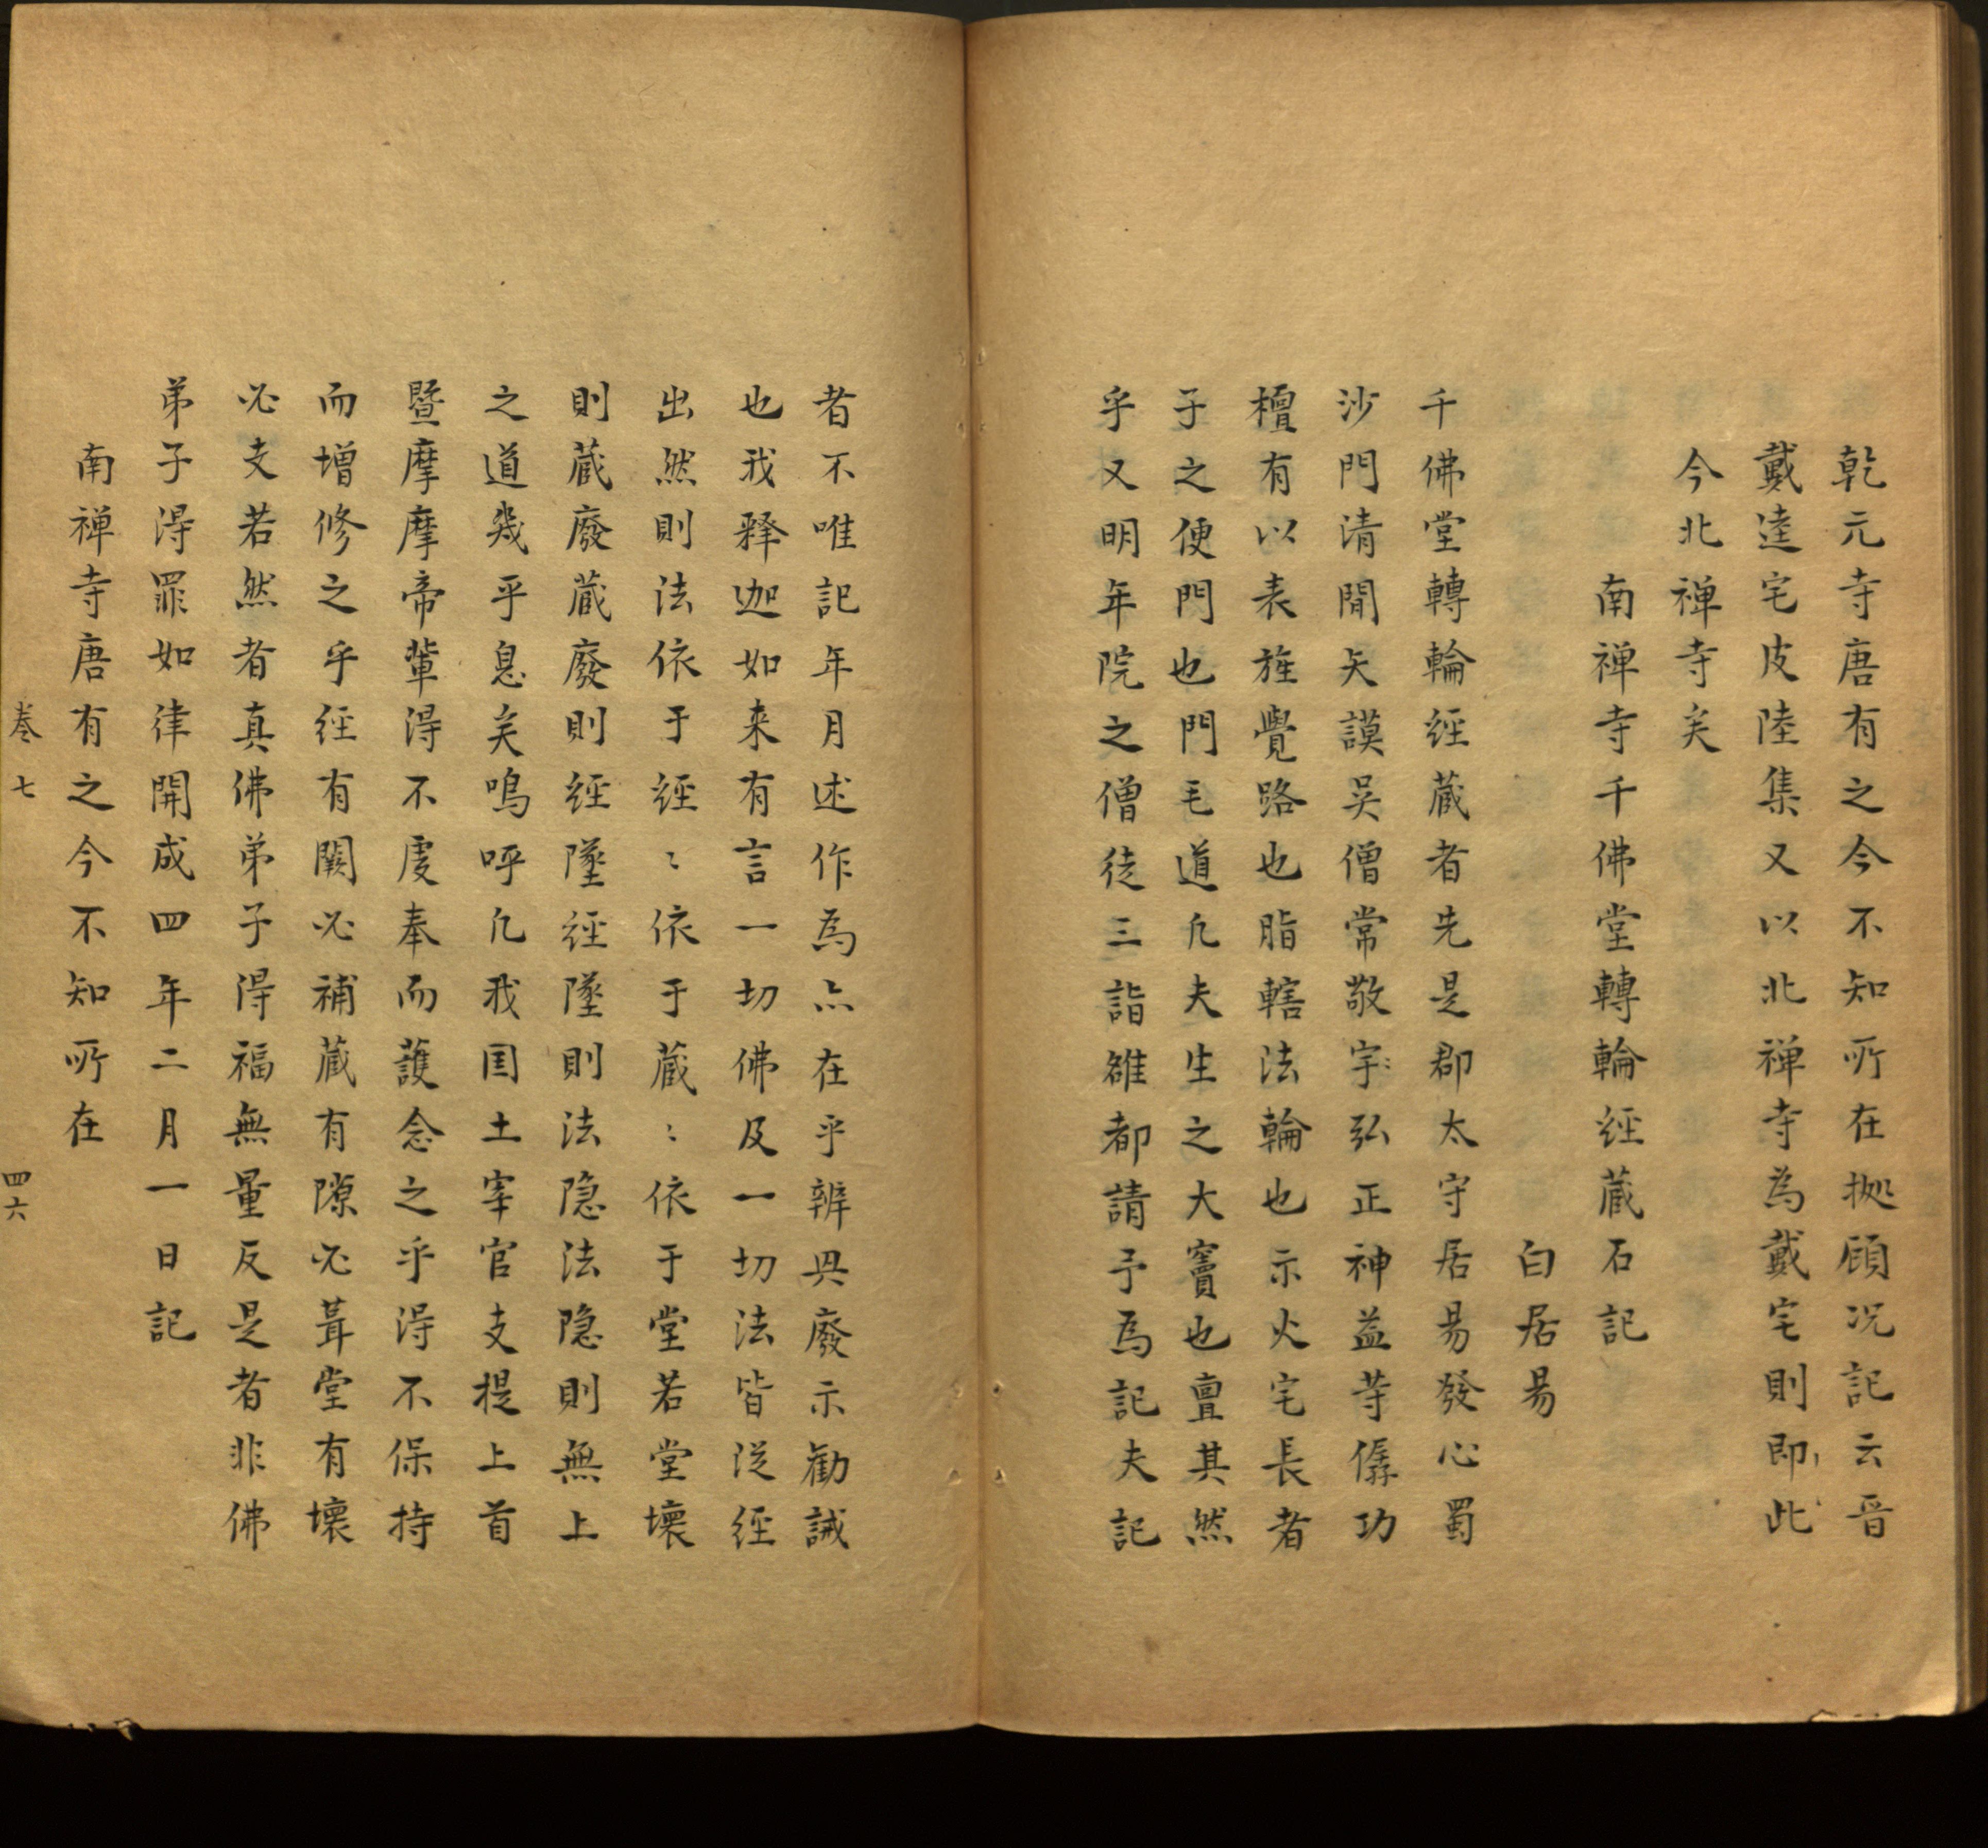 乾元寺唐有之今不知所在㨿顧况記云晋
戴逵宅皮陸集又以北禅寺為戴宅則即此
今北禅寺矣
南禅寺千佛堂轉輪經蔵石記
白居易
千佛堂轉輪經蔵者先是郡太守居易發心蜀
沙門清閒矢謨吴僧常敬宇〻弘正神益等僝功
檀有以表旌覺路也脂轄法輪也示火宅長者
子之便門也門毛道凡夫生之大竇也亶其然
乎又明年院之僧徒三詣雒都請予爲記夫記
者不唯記年月述作為亦在乎辨興廢示勸誡
也我释迦如来有言一切佛及一切法皆従經
出然則法依于經〻依于蔵〻依于堂若堂壞
則蔵廢蔵廢則經墜經墜則法隐法隐則無上
之道幾乎息矣嗚呼凡我国土宰官支提上首
暨摩摩帝輩淂不虔奉而護念之乎淂不保持
而增修之乎經有闕必補蔵有隙必葺堂有壞
必支若然者真佛弟子淂福無量反是者非佛
弟子淂罪如律開成四年二月一日記
南禅寺唐有之今不知所在
卷七
四六